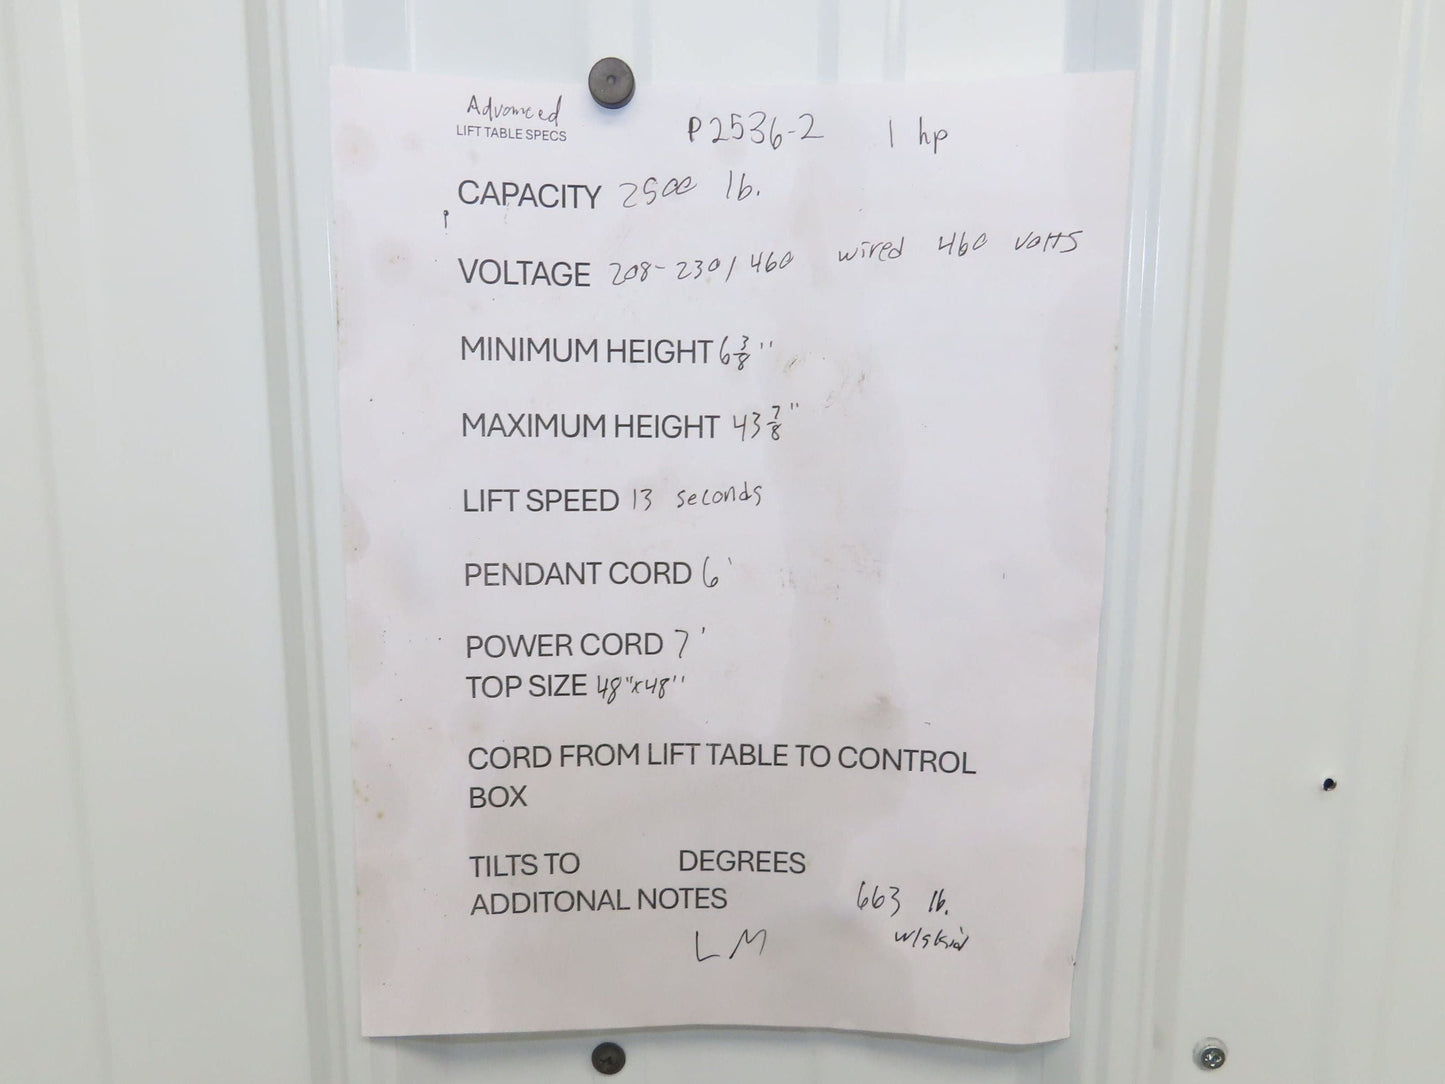 Advanced
LIFT TABLE SPECS P2536-2 1 hp
CAPACITY 2500 lb.
VOLTAGE 208-230/460 wired 460 volts
MINIMUM HEIGHT 6 3/8"
MAXIMUM HEIGHT 43 7/8"
LIFT SPEED 13 seconds
PENDANT CORD 6'
POWER CORD 7'
TOP SIZE 48"x48"
CORD FROM LIFT TABLE TO CONTROL
BOX
TILTS TO DEGREES
ADDITONAL NOTES 663 lb.
w/skid
LM